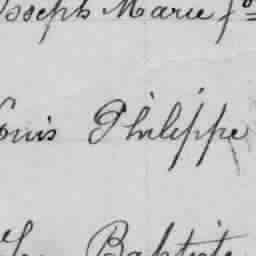 Joseph Marie fº
Louis Philippe
Baptiste